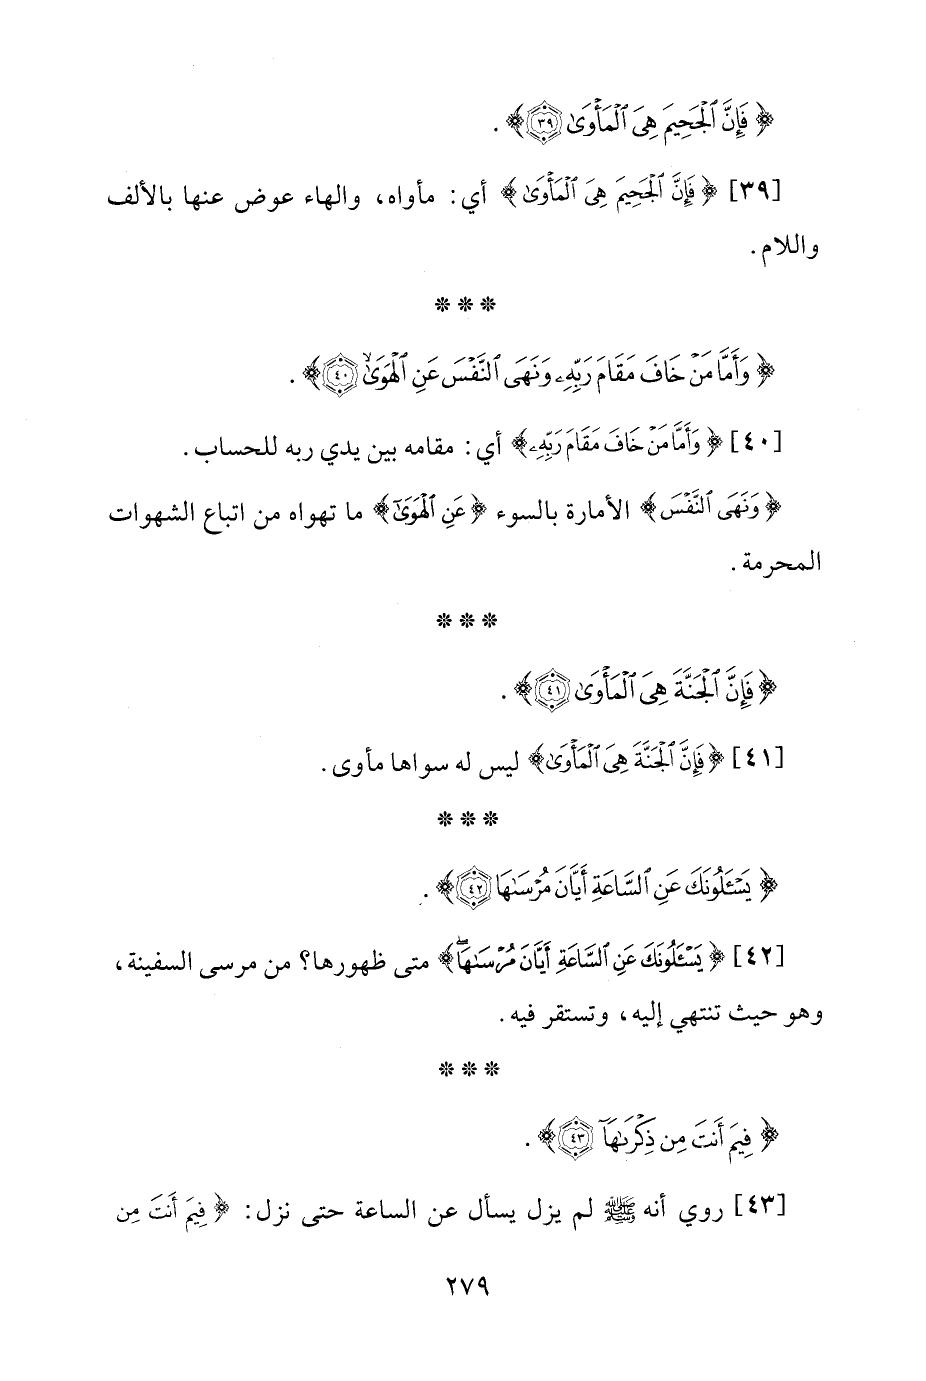 ﴿ فَإِنَّ ٱلۡجَحِيمَ هِىَ ٱلۡمَأۡوَىٰ ٣٩ ﴾ .
[٣٩] ﴿ فَإِنَّ ٱلۡجَحِيمَ هِىَ ٱلۡمَأۡوَىٰ ﴾ أي: مأواه، والهاء عوض عنها بالألف
واللام.
***
﴿ وَأَمَّا مَنۡ خَافَ مَقَامَ رَبِّهِۦ وَنَهَى ٱلنَّفۡسَ عَنِ ٱلۡهَوَىٰۙ ٤٠ ﴾ .
[٤٠] ﴿ وَأَمَّا مَنۡ خَافَ مَقَامَ رَبِّهِۦ ﴾ أي: مقامه بين يدي ربه للحساب.
﴿ وَنَهَى ٱلنَّفۡسَ ﴾ الأمارة بالسوء ﴿ عَنِ ٱلۡهَوَىٰٓ ﴾ ما تهواه من اتباع الشهوات
المحرمة.
***
﴿ فَإِنَّ ٱلۡجَنَّةَ هِىَ ٱلۡمَأۡوَىٰ ٤١ ﴾ .
[٤١] ﴿ فَإِنَّ ٱلۡجَنَّةَ هِىَ ٱلۡمَأۡوَىٰ ﴾ ليس له سواها مأوى.
***
﴿ يَسۡـَٔلُونَكَ عَنِ ٱلسَّاعَةِ أَيَّانَ مُرۡسَىٰهَا ٤٢ ﴾ .
[٤٢] ﴿ يَسۡـَٔلُونَكَ عَنِ ٱلسَّاعَةِ أَيَّانَ مُرۡسَىٰهَاۖ ﴾ متى ظهورها؟ من مرسى السفينة،
وهو حيث تنتهي إليه، وتستقر فيه.
***
﴿ فِيمَ أَنتَ مِن ذِكۡرَىٰهَآ ٤٣ ﴾ .
[٤٣] روي أنه ﷺ لم يزل يسأل عن الساعة حتى نزل: ﴿ فِيمَ أَنتَ مِن
٢٧٩